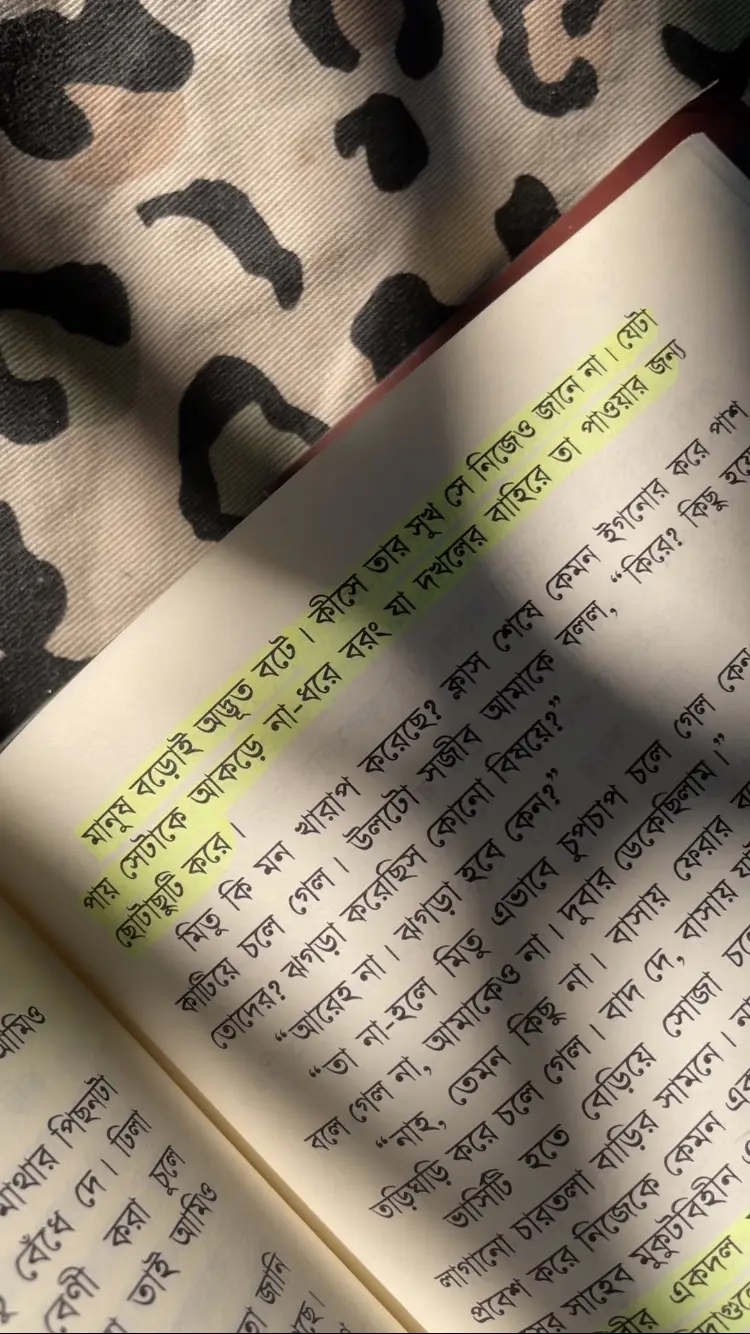 আমিও
মাথার পিছনটা
বেঁধে দে। ঢিলা
বেণী করা চুলে
তাই আমিও
তা জানি
মানুষ বড়োই অদ্ভূত বটে। কীসে তার সুখ সে নিজেও জানে না। যেটা
পায় সেটাকে আকড়ে না-ধরে বরং যা দখলের বাহিরে তা পাওয়ার জন্য
ছোটাছুটি করে।
মিতু কি মন খারাপ করেছে? ক্লাস শেষে কেমন ইগনোর করে পাশ
কাটিয়ে চলে গেল। উলটো সজীব আমাকে বলল, “কিরে? কিছু হয়ে
তোদের? ঝগড়া করেছিস কোনো বিষয়ে?”
“আরেহ না। ঝগড়া হবে কেন?”
“তা না-হলে মিতু এভাবে চুপচাপ চলে গেল কেন
বলে গেল না, আমাকেও না। দুবার ডেকেছিলাম।”
“নাহ, তেমন কিছু না। বাসায় ফেরার
তড়িঘড়ি করে চলে গেল। বাদ দে, বাসায়
ভার্সিটি হতে বেড়িয়ে সোজা
লাগানো চারতলা বাড়ির সামনে।
প্রবেশ করে নিজেকে কেমন
সাহেব মুকুটবিহীন
একদল